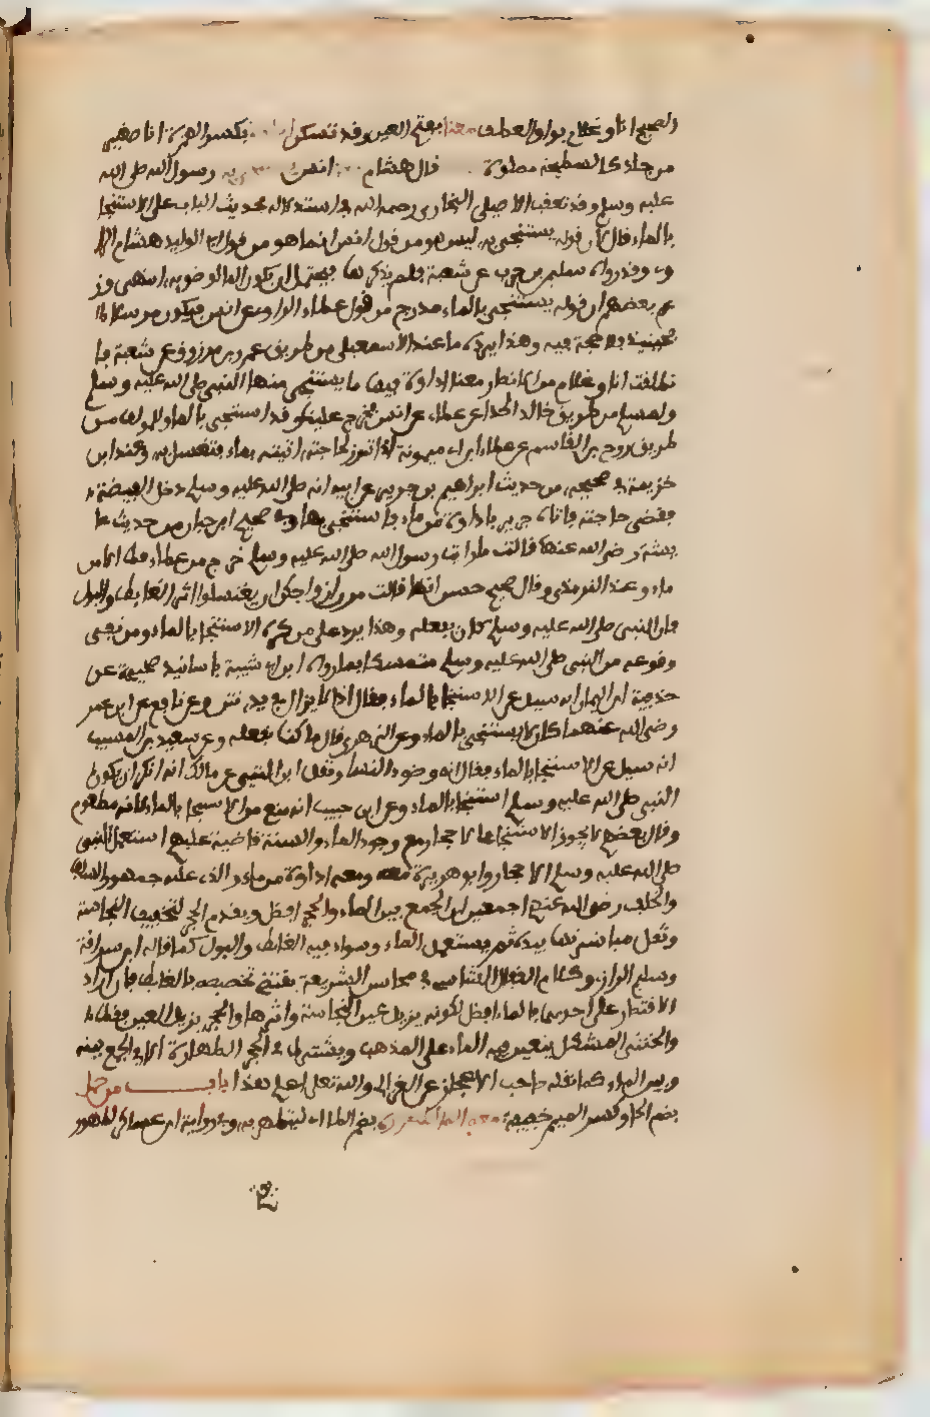 الصحيح انا وغلام بواو العطف معنا بفتح العين وقد تسكن بكسر الهمزة انا صغير
من جلد كالسطيحة مملوة قال هشام انس رسول الله صلى الله
عليه وسلم وقد تعقب الاصيلي البخاري رحمه الله في استدلاله بحديث الباب على الاستنجا
بالماء قال لان قوله يستنجي به ليس هو من قول انس انما هو من قول ابي الوليد هشام
وقد رواه سليمن بن حرب عن شعبة فلم يذكرها فيحتمل ان يكون الماء لوضويه انتهى وز
عم بعضهم ان قوله يستنجي بالماء مدرج من قول عطاء الراوي عن انس فيكون مرسلا فلا
حينيذ حجة فيه وهذا يرده ما عند الاسمعيلي من طريق عمرو بن مرزوق عن شعبة فا
نطلقت انا وغلام من الانصار معنا اداوة فيها ما يستنجي منها النبي صلى الله عليه وسلم
ولمسلم من طريق خالد الحذاء عن عطاء عن انس فخرج علينا وقد استنجى بالماء وللمولف من
طريق روح بن القاسم عن عطاء ابن ابي ميمونة اذا تبرز لحاجته اتيته بماء فتغسل به وعند ابن
خزيمة في صحيحه من حديث ابراهيم بن جرير عن ابيه انه صلى الله عليه وسلم دخل الغيضة
فقضى حاجته فاتاه جرير باداوة من ماء فاستنجى بها وفي صحيح ابن حبان من حديث عا
يشة رضي الله عنها قالت ما رايت رسول الله صلى الله عليه وسلم خرج من غايط قط الا مس
ماء وعند الترمذي وقال صحيح حسن انها قالت مرن ازواجكن ان يغسلوا اثر الغايط والبول
فان النبي صلى الله عليه وسلم كان يفعله وهذا يرد على من كره الاستنجا بالماء ومن نفى
وقوعه من النبي صلى الله عليه وسلم متمسكا بما رواه ابن ابي شيبة باسانيد صحيحة عن
حذيفة ابن اليمان انه سيل عن الاستنجا بالماء فقال اذا لا يزال في يدي نتن وعن نافع عن ابن عمر
رضي الله عنهما كان لا يستنجي بالماء وعن الزهري قال ما كنا نفعله وعن سعيد بن المسيب
انه سيل عن الاستنجا بالماء فقال انه وضوء النساء ونقل ابن التين عن مالك انه انكر ان يكون
النبي صلى الله عليه وسلم استنجا بالماء وعن ابن حبيب انه منع من الاستنجا بالماء لانه مطعوم
وقال بعضهم لا يجوز الاستنجا بالاحجار مع وجود الماء والسنة قاضية عليهم استعمل النبي
صلى الله عليه وسلم الاحجار وابو هريرة معه ومعه اداوة من ماء والذي عليه جمهور السلف
والخلف رضي الله عنهم اجمعين ان الجمع بين الماء والحجر افضل ويقدم الحجر لتخفيف النجاسة
وتقل مباشرتها بيده ثم يستعمل الماء وسواء فيه الغايط والبول كما قاله ابن سراقة
وسليم الرازي وكلام القفال الشاشي في محاسن الشريعة يقتضي تخصيصه بالغايط فان اراد
الاقتصار على احدهما فالماء افضل لكونه يزيل عين النجاسة واثرها والحجر يزيل العين فقط
والخنثى المشكل يتعين فيه الماء على المذهب ويشترط في الحجر الطهارة الا في الجمع بينه
وبين الماء كما نقله صاحب الاعجاز عن الغزالي والله تعلى اعلم هذا باب من حمل
بضم الحاء وكسر الميم خفيفة معه الماء بضم الطاء اي ليتطهر به وفي رواية ابن عساكر لطهور